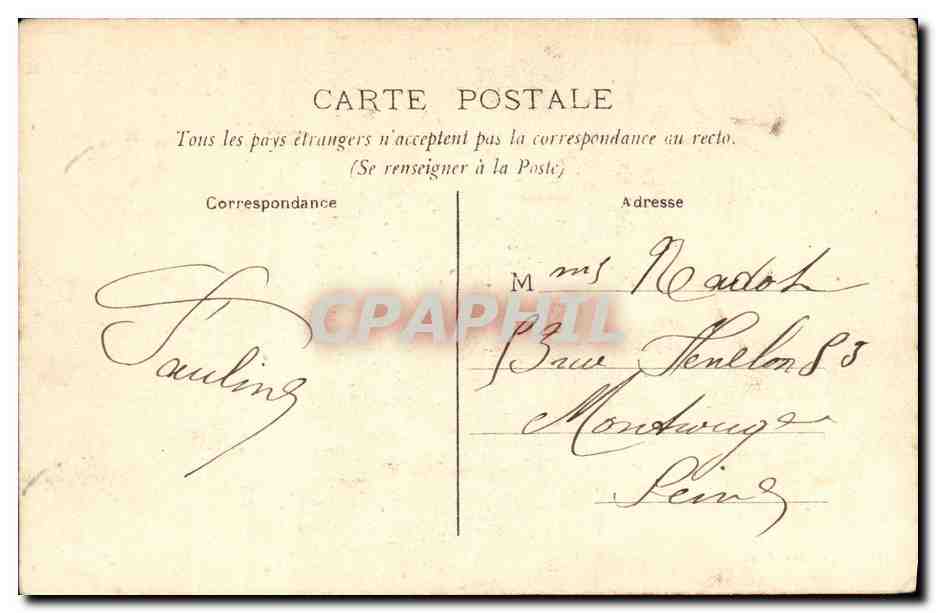 CARTE POSTALE
Tous les pays étrangers n'acceptent pas la correspondance au recto.
(Se renseigner à la Poste)
Correspondance
Adresse
Pauline
M me Nadot
rue Fenelon 83
Montrouge
Seine
CPAPHIL